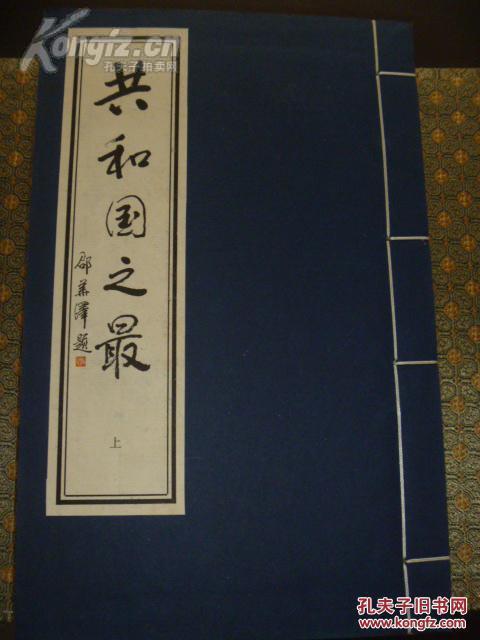 Kongfz.cn
孔夫子拍卖网
共和国之最
邵华泽题
上
孔夫子旧书网
www.kongfz.com